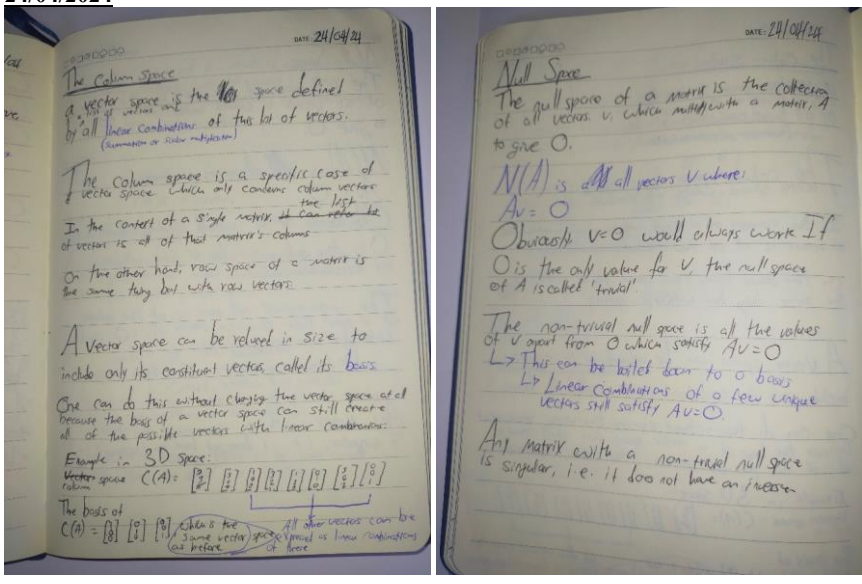 24/04/2024
DATE: 24/04/24
The Column Space
a vector space is the space defined
a list of vectors and
by all linear combinations of this list of vectors.
(summation or scalar multiplication)
The column space is a specific case of
vector space which only contains column vectors
In the context of a single matrix, it can refer to the list
of vectors is all of that matrix's columns
On the other hand, row space of a matrix is
the same thing but with row vectors.
A vector space can be reduced in size to
include only its constituent vectors, called its basis
One can do this without changing the vector space at all
because the basis of a vector space can still create
all of the possible vectors with linear combinations:
Example in 3D space:
Vector column space C(A) =
The basis of
C(A) = which is the same vector space as before
All other vectors can be
expressed as linear combinations
of these
DATE: 24/04/24
Null Space
The null space of a matrix is the collection
of all vectors v, which multiply with a matrix, A
to give O.
N(A) is all vectors v where:
Av = O
Obviously v=O would always work If
O is the only value for v, the null space
of A is called 'trivial'.
The non-trivial null space is all the values
of v apart from O which satisfy Av=O
↳ This can be boiled down to a basis
↳ Linear Combinations of a few unique
vectors still satisfy Av=O.
Any matrix with a non-trivial null space
is singular, i.e. it does not have an inverse